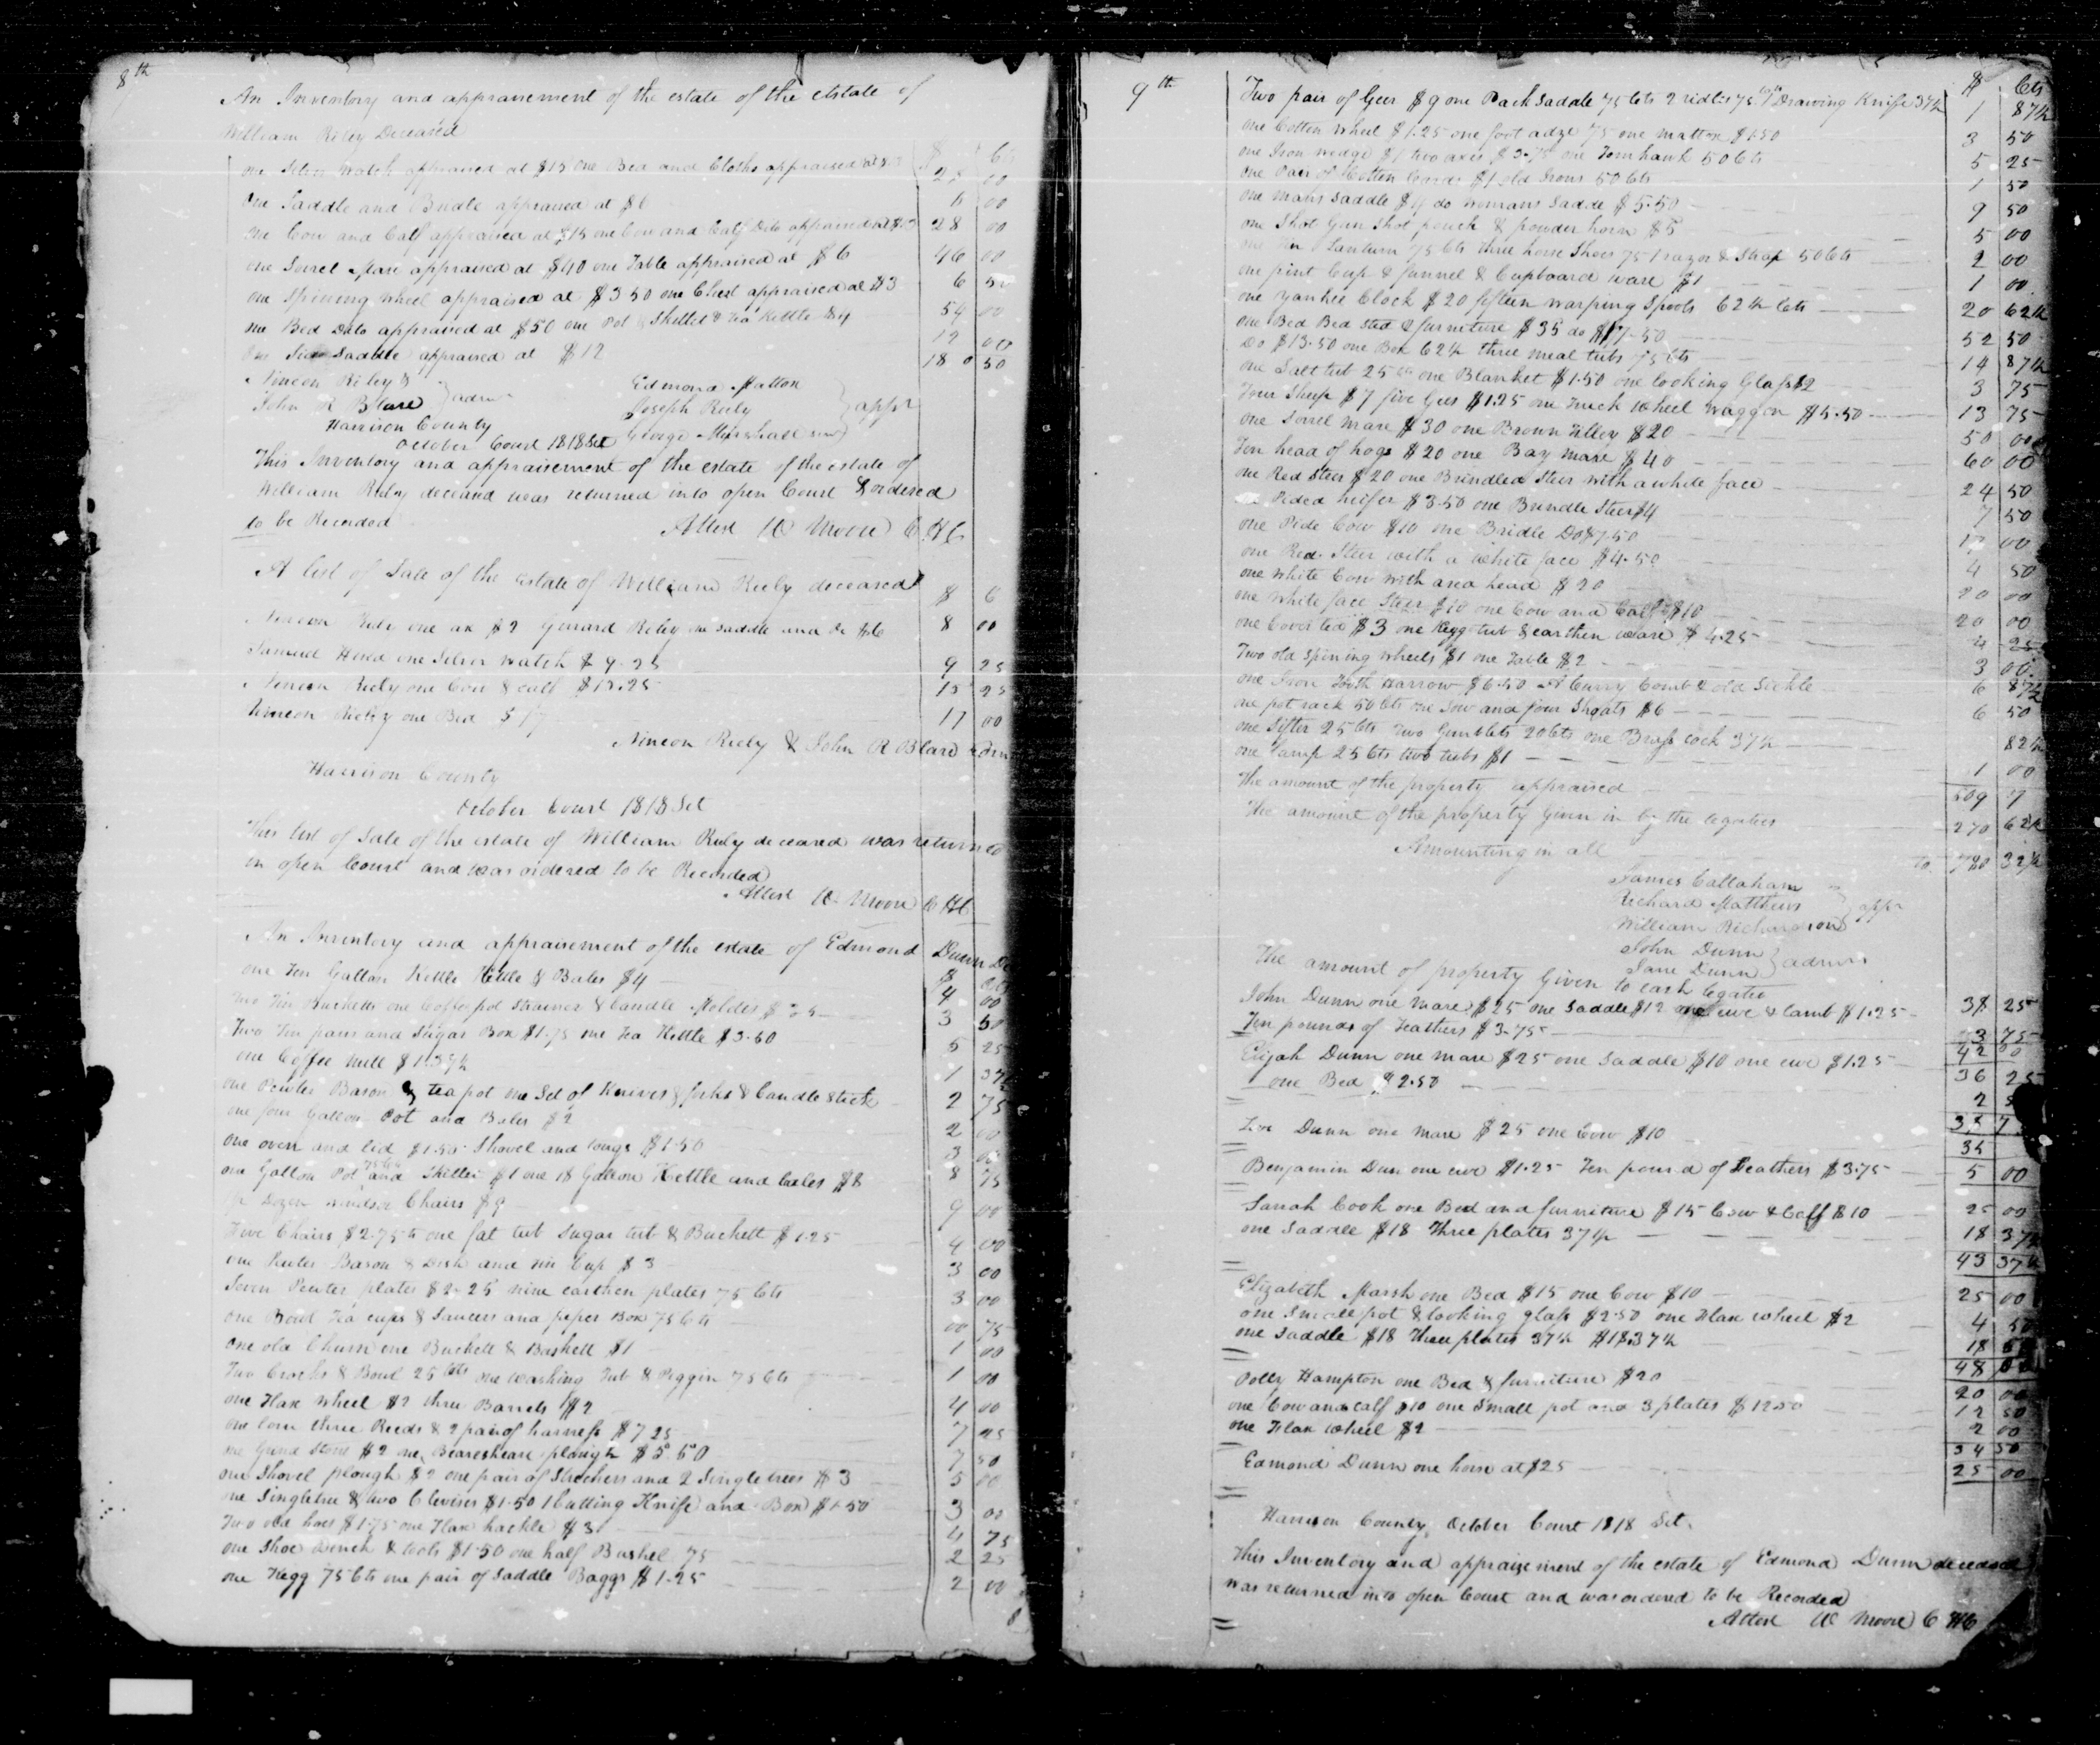 8th
An Inventory and appraisement of the estate of the estate of
William Riley Deceased
$ Cts
one Silver Watch appraised at $15 one Bed and Cloths appraised at
00
One Saddle and Bridle appraised at $6 6 00
one Cow and Calf appraised at $15 one Cow and Calf Dito appraised at $13 28 00
one Sorrel Mare appraised at $40 one Table appraised at $6 46 00
one Spining wheel appraised at $3 50 one Chest appraised at $3 6 50
one Bed Dito appraised at $50 one Pot & Skillet & Tea Kettle $4 54 00
One Side Saddle appraised at $12 12 00
18 0 50
Nineon Riley &
John R Blare } adm
Edmond Matton
Joseph Reily
George Marshall senr } appr
Harrison County
October Court 1818 Sct
This Inventory and appraisement of the estate of the estate of
William Riely deceased was returned into open Court & ordered
to be Recorded
Attest W Moore C H C
A list of Sale of the estate of William Riely deceased
$ C
Nineon Riely one ax $2 Gerard Riley one saddle and Do $6 8 00
Samuel one Silver Watch $9.25 9 25
Nineon Riely one Cow & calf $15.25 15 25
Nineon Riely one Bed $17 17 00
Nineon Riely & John R Blare adm
Harrison County
October Court 1818 Sct
This list of Sale of the estate of William Riely deceased was returned
in open Court and was ordered to be Recorded
Attest W. Moore C H C
An Inventory and appraisement of the estate of Edmond Dunn De
$ Cts
one Ten Gallon Kettle Kittle & Bales $4 4 00
two Tin Bucketts one Coffee pot strainer & Candle Molds 3 50
Two Tin pans and Sugar Box $1.75 one Tea Kettle $3.50 5 25
one Coffee Mill $1.37½ 1 37½
one Pewter Bason & tea pot one Set of Knives & forks & Candle stick 2 75
one four Gallon Pot and Bales $2 2 00
one oven and lid $1.50 Shovel and tongs $1.50 3 00
one Gallon Pot 75 Cts and Skillet $1 one 18 Gallon Kettle and bales $8 8 75
Dozen windsor Chairs $9 9 00
Five Chairs $2.75 cts one fat tub Sugar tub & Buckett $1.25 4 00
one Puter Bason & Dish and tin Cup $3 3 00
Seven Peuter plates $2.25 nine earthen plates 75 Cts 3 00
one Bowl Tea cups & Saucers and peper Box 75 Cts 00 75
one old Churn one Buckett & Baskett $1 1 00
Two Crocks & Bowl 25 cts one washing Tub & Piggin 75 Cts 1 00
one Flax Wheel $2 three Barrels $2 4 00
one loom three Reeds & 2 pair of harness $7.25 7 25
one Grind Stone $2 one Beareshear plough $5.50 7 50
one Shovel plough $2 one pair of Stretchers and 2 Singletrees $3 5 00
one Singletree & two Clevises $1.50 1 Cutting Knife and Box $1.50 3 00
Two old hoes $1.75 one Flax hackle $3 4 75
one Shoe Bench & tools $1.50 one half Bushel 75 2 25
one Kegg 75 Cts one pair of Saddle Baggs $1.25 2 00
9th
$ Cts
Two pair of Geer $9 one Pack Saddle 75 Cts 2 ridles 75 Cts Drawing Knife 37½ 1 87½
one Cotten Wheel $1.25 one foot adze 75 one Mattox $1.50 3 50
one Iron wedge $1 two axes $3.75 one Tomhawk 50 Cts 5 25
one Pair of Cotten Cards $1 old Irons 50 Cts 1 50
one mans saddle $4 do womans Saddle $5.50 9 50
one Shot Gun Shot pouch & powder horn $5 5 00
one Tin Lantern 75 Cts three horse Shoes 75 1 razor & Strap 50 Cts 2 00
one pint Cup & funnel & Cupboard ware $1 1 00
one yankee Clock $20 fifteen warping Spools 62½ Cts 20 62½
one Bed Bed sted & furniture $35 do $17.50 52 50
Do $13.50 one Box 62½ three meal tubs 75 Cts 14 87½
one Salt tub 25 cts one Blanket $1.50 one looking Glass $2 3 75
Four Sheep $7 five Gees $1.25 one Truck Wheel Waggon $5.50 13 75
one Sorrel Mare $30 one Brown Filley $20 50 00
Ten head of hogs $20 one Bay mare $40 60 00
one Red Steer $20 one Brindled Steer with a white face 24 50
Pided heifer $3.50 one Brindle Steer $4 7 50
one Pide Cow $10 one Bridle Do $7.50 17 00
one Red Steer with a White face $4.50 4 50
one White Cow With a red head $20 20 00
one white face Steer $10 one Cow and Calf $10 20 00
one Coverled $3 one Kegg tub & earthen ware $4.25 4 25
Two old Spining Wheels $1 one Table $2 3 00
one Iron Tooth Harrow $6.50 A Curry Comb & old Sickle 6 87½
one pot rack 50 Cts one Sow and four Shoats $6 6 50
one Sifter 25 Cts Two Gimblets 20 Cts one Brass cock 37½ 82½
one Lamp 25 Cts two tubs $1 1 00
The amount of the property appraised 509 7
The amount of the property Given in by the legatees 270 62½
Amounting in all to 780 32½
James Callaham
Richard Matthews
William Richardson } appr
John Dunn
Jane Dunn } admrs
The amount of property Given to each legatee
John Dunn one mare $25 one Saddle $12 one ewe & lamb $1.25 38 25
Ten pounds of Feathers $3.75 3 75
42 00
Elijah Dunn one mare $25 one Saddle $10 one ewe $1.25 36 25
one Bed $2.50 2
Dunn one mare $25 one Cow $10 35
Benjamin Dun one ewe $1.25 Ten pound of Feathers $3.75 5 00
Sarrah Cook one Bed and furniture $15 Cow & Calf $10 25 00
one Saddle $18 Three plates 37½ 18 37½
43 37½
Elizabeth Marsh one Bed $15 one Cow $10 25 00
one Small pot & looking glass $2.50 one Flax wheel $2 4 50
one Saddle $18 Three plates 37½ $18.37½ 18
48
Polly Hampton one Bed & furniture $20 20 00
one Cow and calf $10 one Small pot and 3 plates $12.50 12 50
one Flax Wheel $2 2 00
34 50
Edmond Dunn one horse at $25 25 00
Harrison County October Court 1818 Sct.
This Inventory and appraizement of the estate of Edmond Dunn deceased
was returned into open Court and was ordered to be Recorded
Attest W Moore C H C